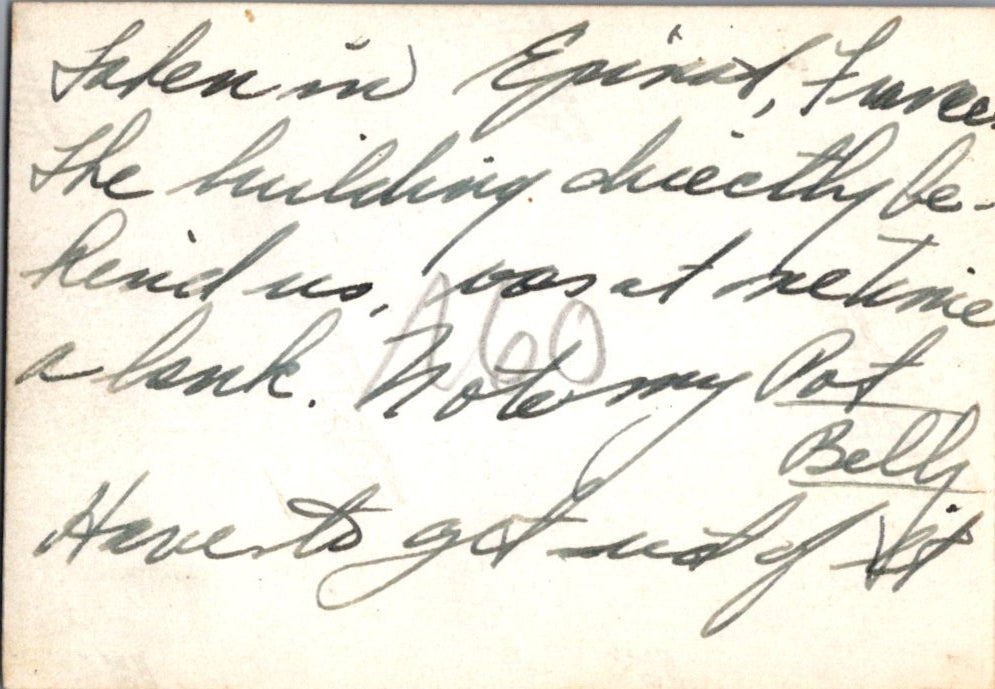 Taken in Epinal, France.
The building directly be-
hind us, was at one time
a bank. Note my Pot
Belly
Have to get out of it
A60